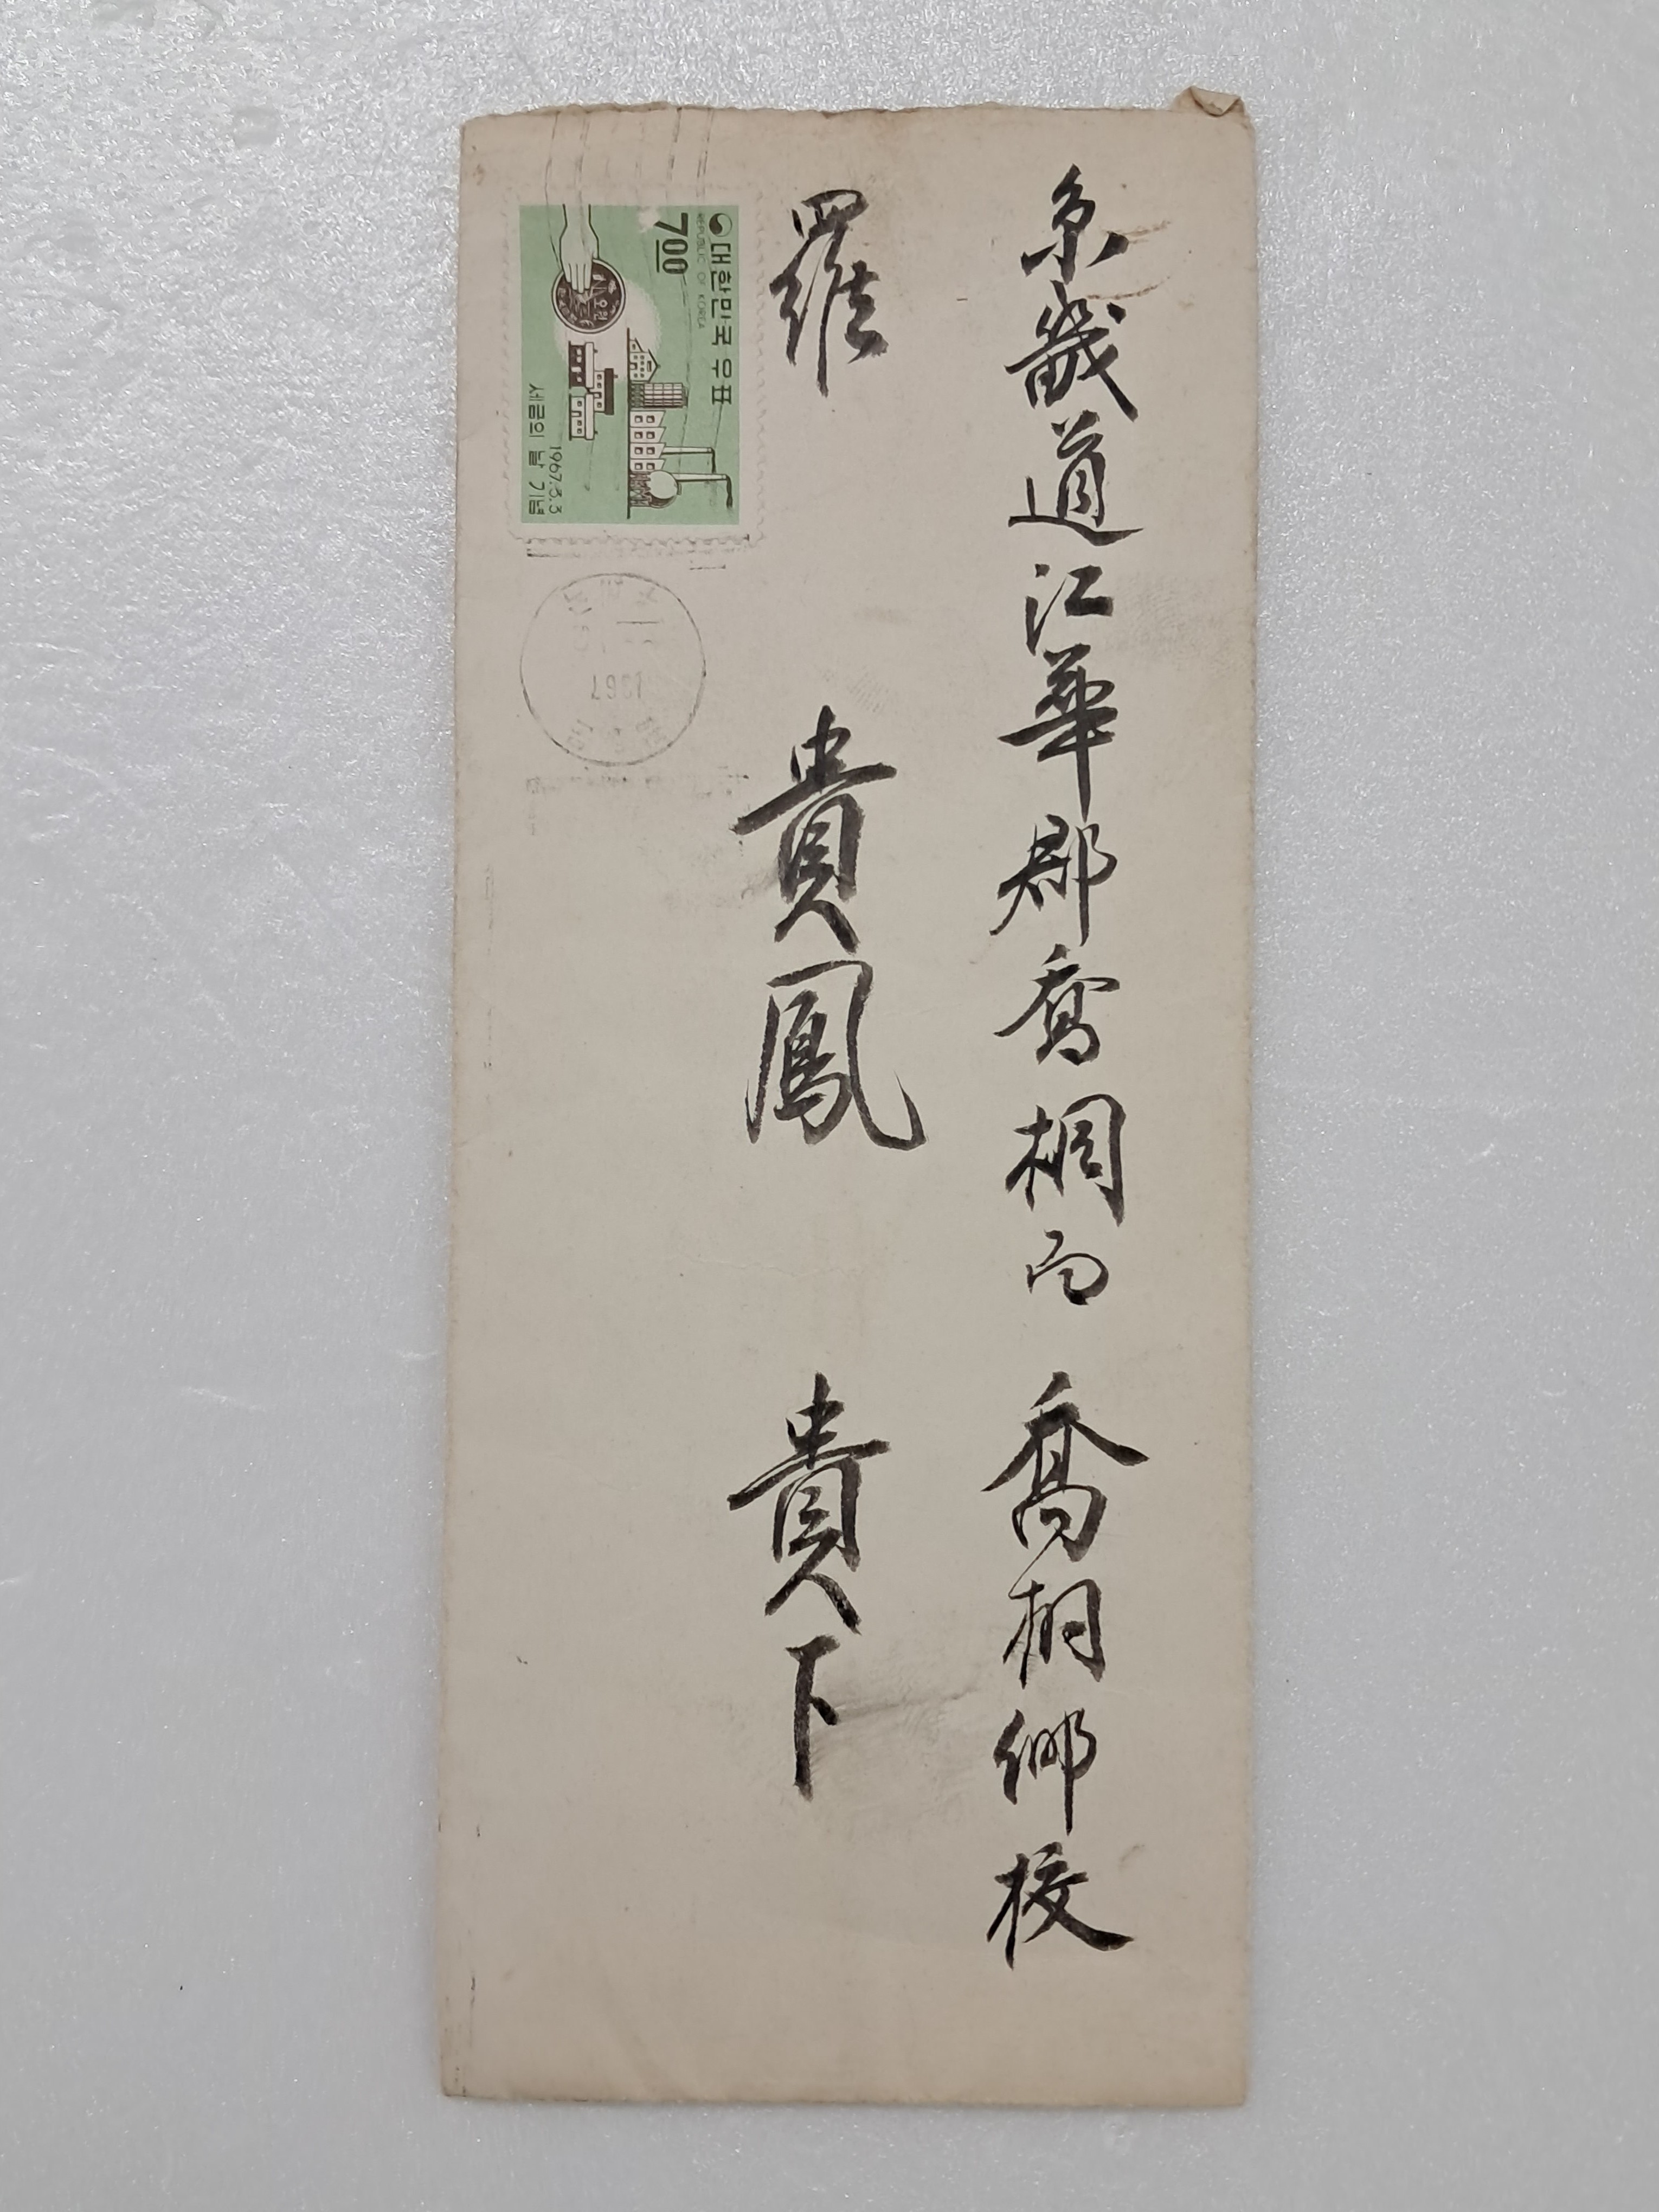 京畿道江華郡喬桐面 喬桐鄕校
羅 貴鳳 貴下
대한민국 우표
REPUBLIC OF KOREA
7.00
오원
1967.3.3
세금의 날 기념
1967